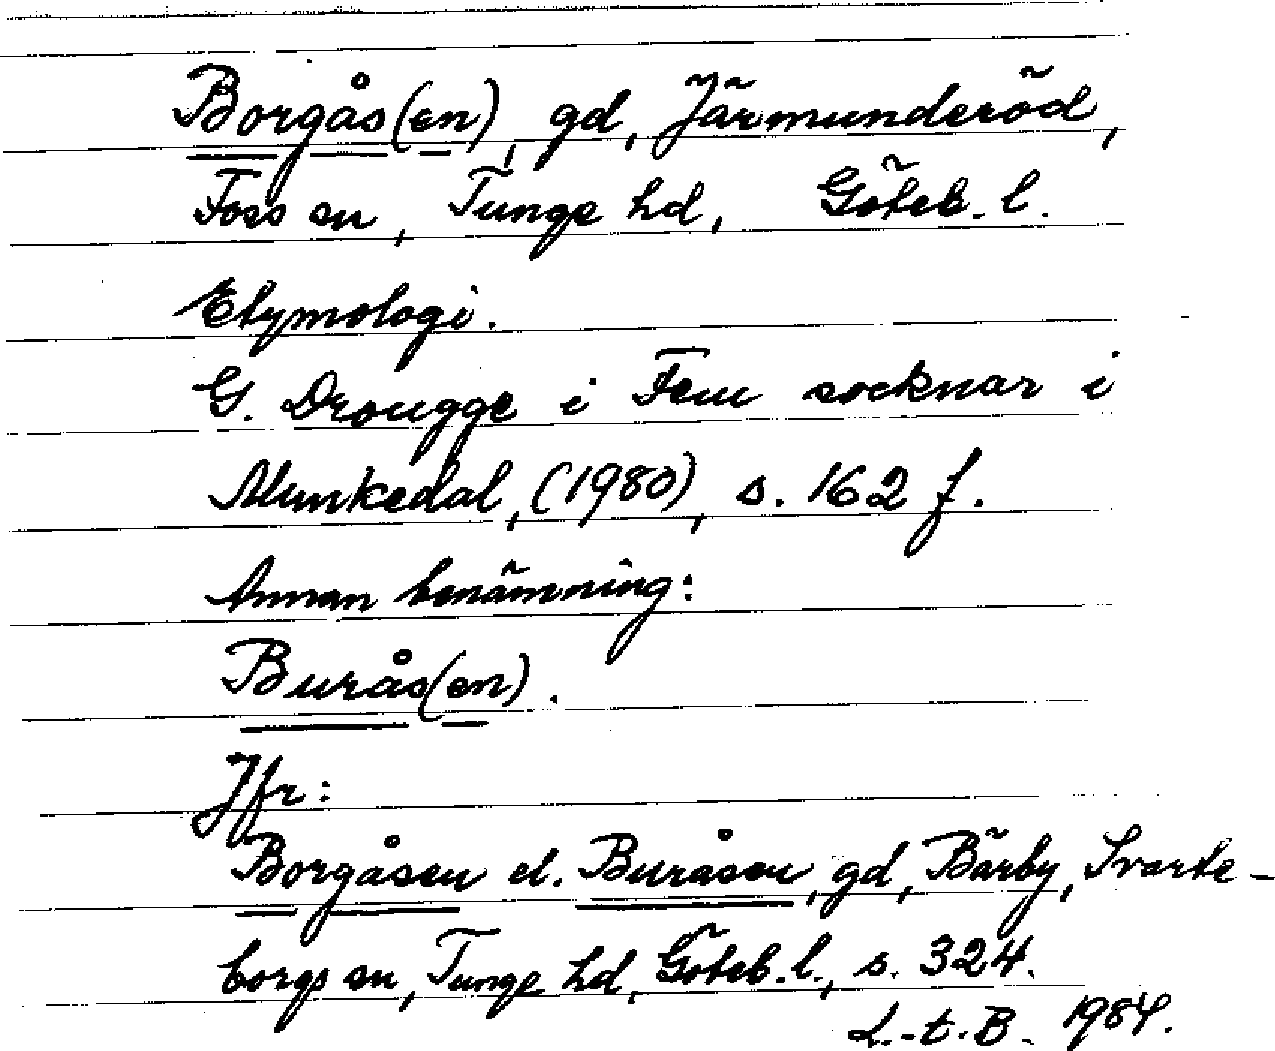 Borgås(en), gd, Järmunderöd,
Foss sn, Tunge hd, Göteb. l.
Etymologi.
G. Drougge i Fem socknar i
Munkedal, (1980), s. 162 f.
Annan benämning:
Burås(en).
Jfr:
Borgåsen el. Buråsen, gd, Bärby, Svarte-
borgs sn, Tunge hd, Göteb. l., s. 324.
L.-t. B. 1984.